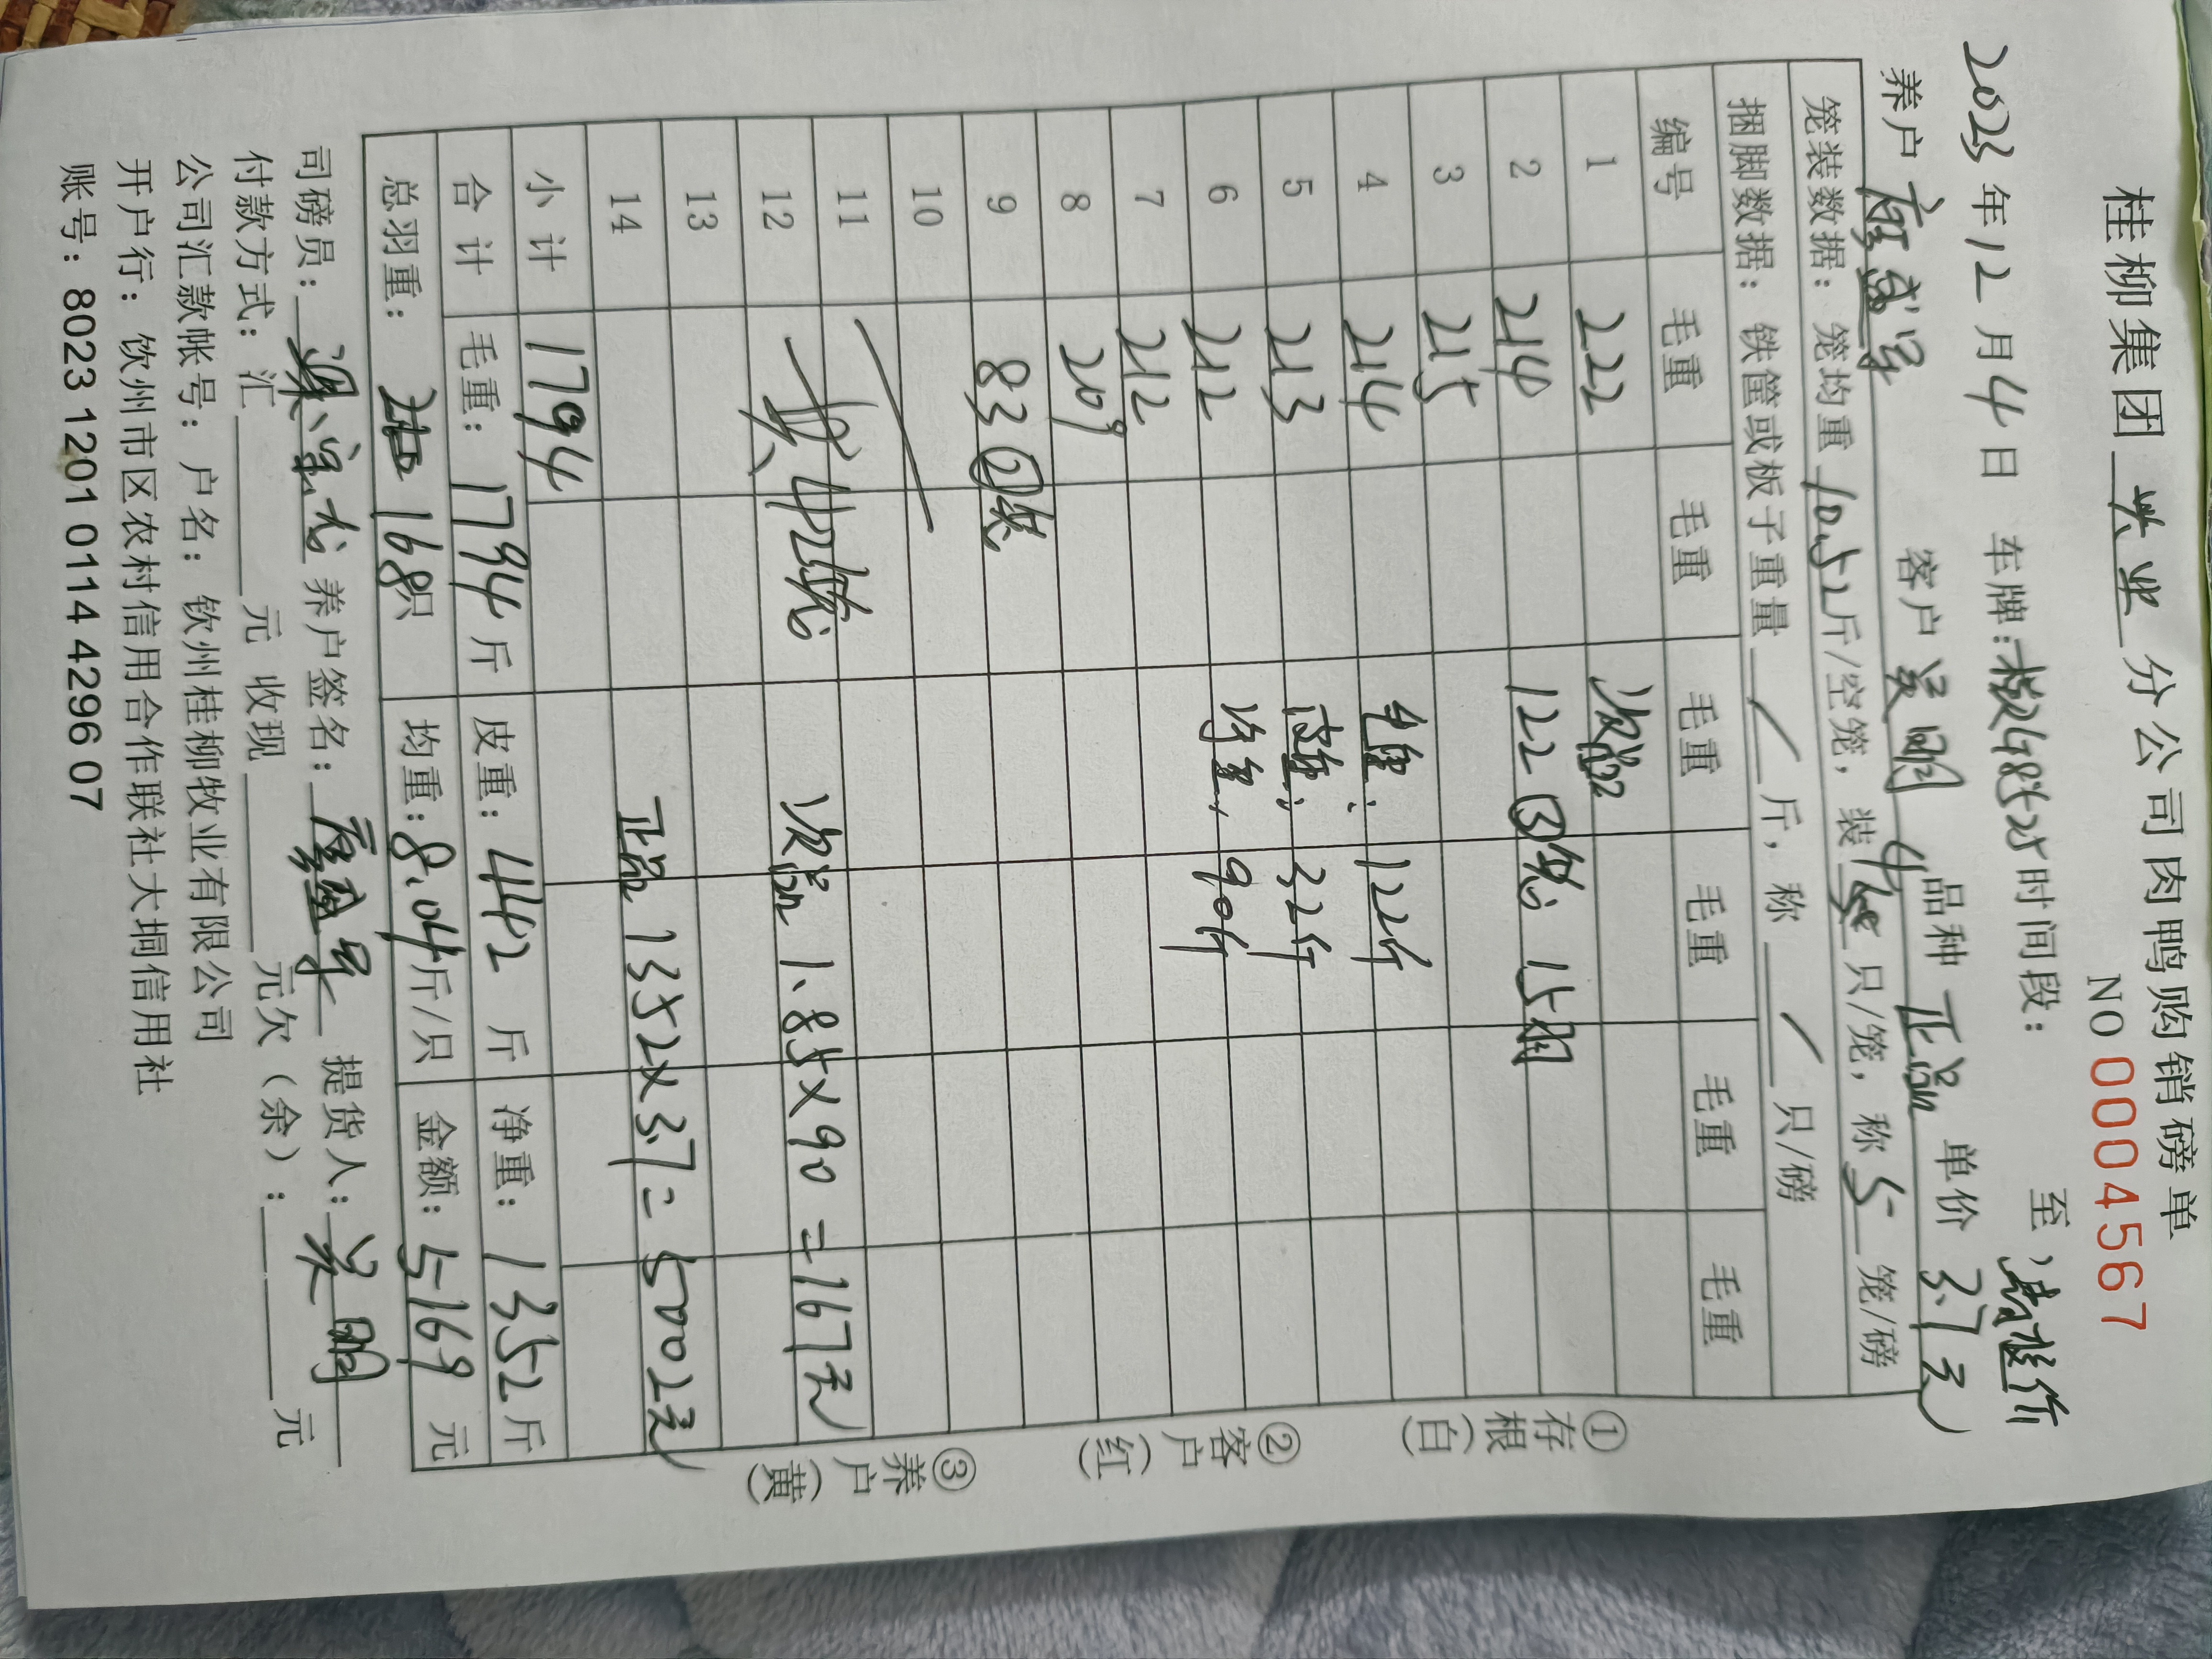 桂柳集团 兴业 分公司肉鸭购销磅单
NO 0004567
2023年12月4日 车牌: 时间段: 至
养户 客户 吴明 品种 正品 单价 3.7元
笼装数据: 笼均重 10.52斤/空笼, 装 4 只/笼, 称 5 笼/磅
捆脚数据: 铁筐或板子重量 / 斤, 称 / 只/磅
编号 毛重 毛重 毛重 毛重 毛重 毛重
1 222 次品
2 214 122 ③笼 15羽
3 215
4 214 毛重: 122斤
5 213 皮重: 32斤
6 212 净重: 90斤
7 212
8 209
9 83 ②笼
10
11
12 共42笼 次品 1.85×90=167元
13
14 正品 1352×3.7=5002元
小计 1794
合计 毛重: 1794斤 皮重: 442斤 净重: 1352斤
总羽重: 168只 均重: 8.04斤/只 金额: 5169元
司磅员: 养户签名: 提货人: 吴明
付款方式: 汇 元 收现 元欠(余): 元
公司汇款帐号: 户名: 钦州桂柳牧业有限公司
开户行: 钦州市区农村信用合作联社大垌信用社
账号: 8023 1201 0114 4296 07
①存根(白) ②客户(红) ③养户(黄)